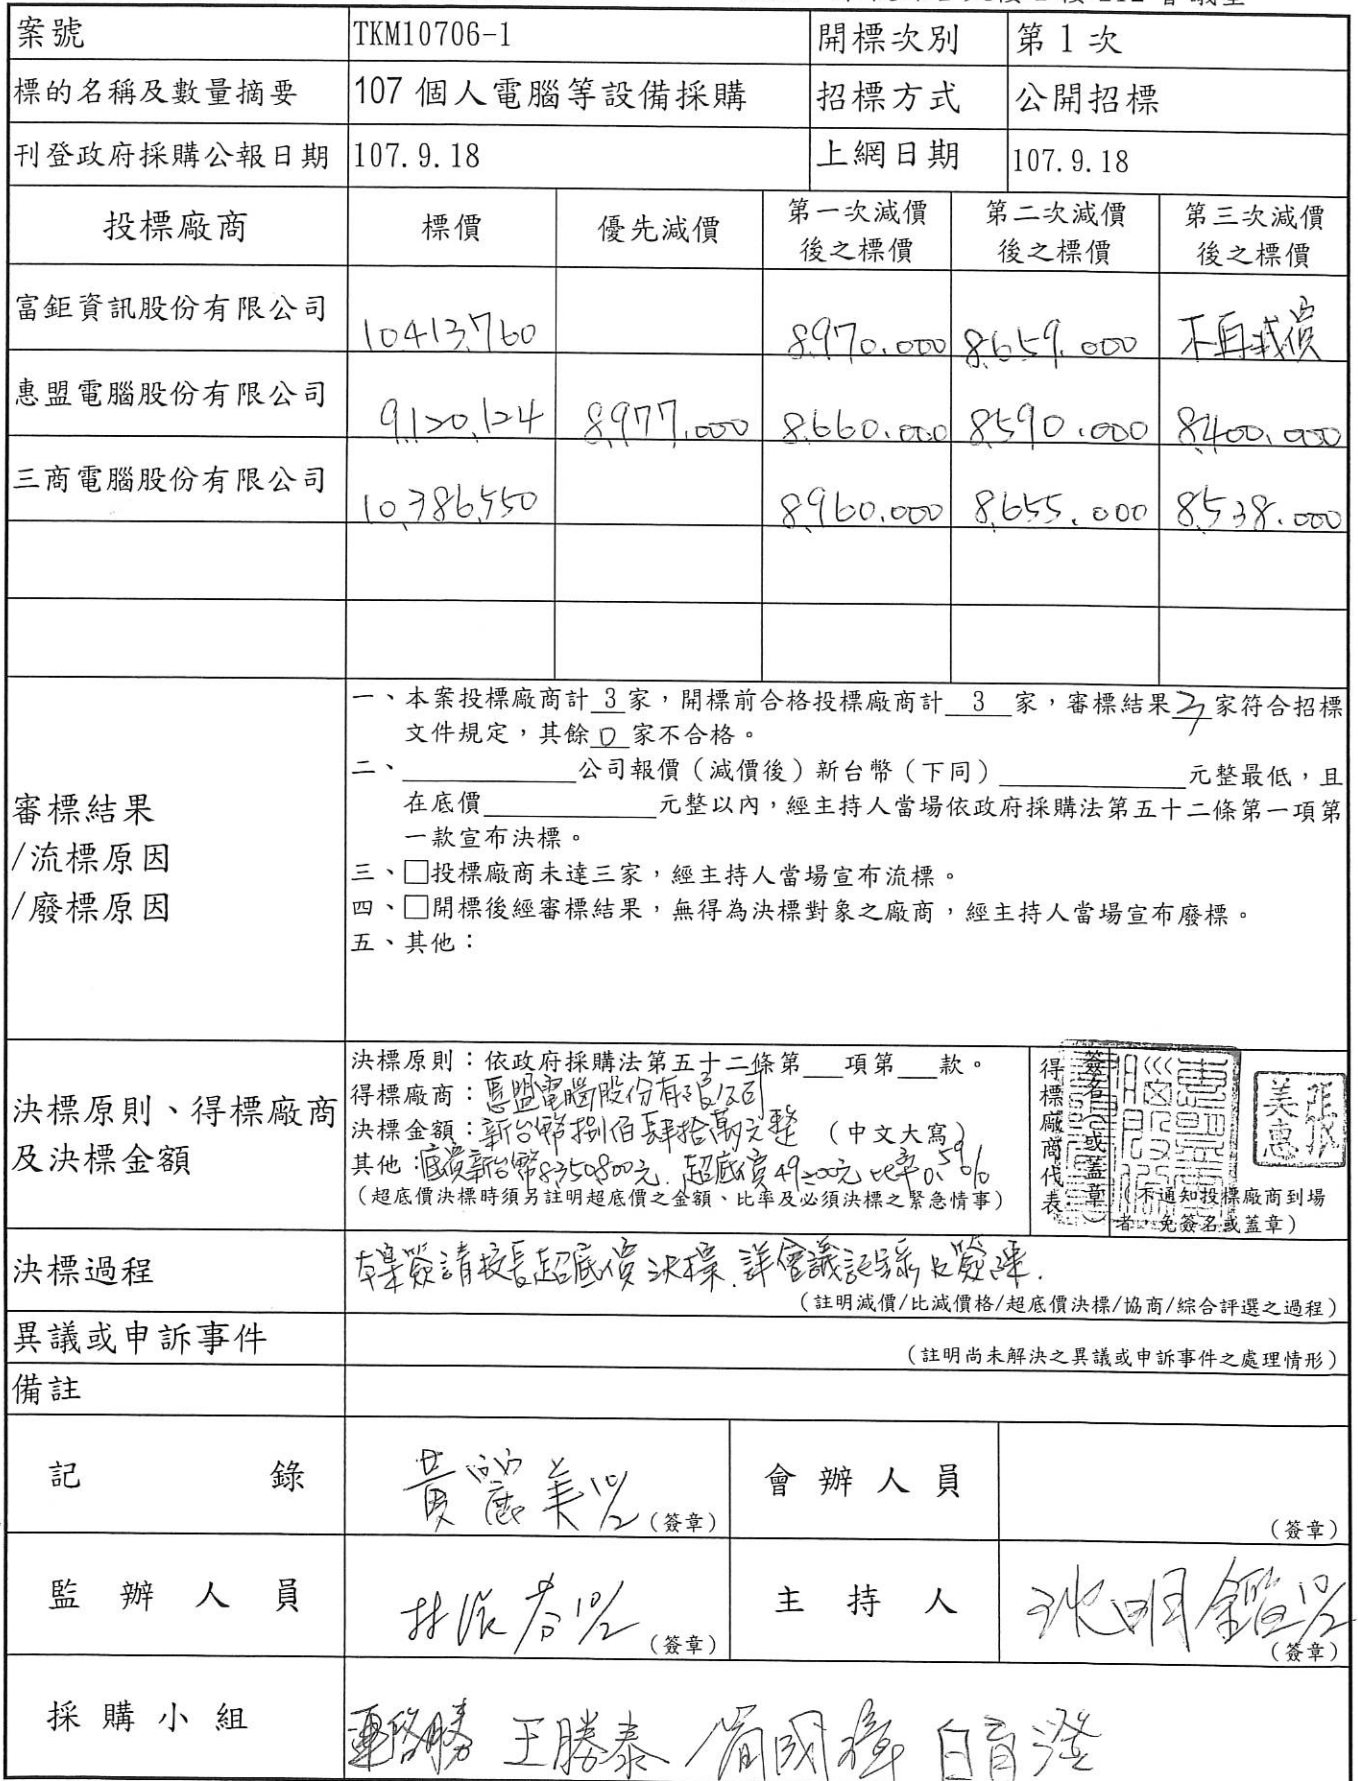 案號 TKM10706-1 開標次別 第1次
標的名稱及數量摘要 107 個人電腦等設備採購 招標方式 公開招標
刊登政府採購公報日期 107.9.18 上網日期 107.9.18
投標廠商 標價 優先減價 第一次減價後之標價 第二次減價後之標價 第三次減價後之標價
富鉅資訊股份有限公司 10,413,760 8,970,000 8,659,000 不再減價
惠盟電腦股份有限公司 9,120,124 8,977,000 8,660,000 8,590,000 8,400,000
三商電腦股份有限公司 10,386,550 8,960,000 8,655,000 8,538,000
審標結果
/流標原因
/廢標原因
一、本案投標廠商計 3 家，開標前合格投標廠商計 3 家，審標結果 3 家符合招標
文件規定，其餘 0 家不合格。
二、 公司報價（減價後）新台幣（下同） 元整最低，且
在底價 元整以內，經主持人當場依政府採購法第五十二條第一項第
一款宣布決標。
三、□投標廠商未達三家，經主持人當場宣布流標。
四、□開標後經審標結果，無得為決標對象之廠商，經主持人當場宣布廢標。
五、其他：
決標原則、得標廠商
及決標金額
決標原則：依政府採購法第五十二條第 項第 款。
得標廠商：惠盟電腦股份有限公司
決標金額：新台幣捌佰肆拾萬元整 （中文大寫）
其他：底價新台幣8350800元. 超底價49200元 比率0.59%
（超底價決標時須另註明超底價之金額、比率及必須決標之緊急情事）
得標廠商代表
簽名（或蓋章）
張美惠
（不通知投標廠商到場
者，免簽名或蓋章）
決標過程 簽請校長超底價決標.詳會議記錄及簽陳.
（註明減價/比減價格/超底價決標/協商/綜合評選之過程）
異議或申訴事件
（註明尚未解決之異議或申訴事件之處理情形）
備註
記 錄 黃麗美 10/2 （簽章） 會辦人員 （簽章）
監辦人員 10/2 （簽章） 主持人 沈明鑑 10/2 （簽章）
採購小組 王勝泰